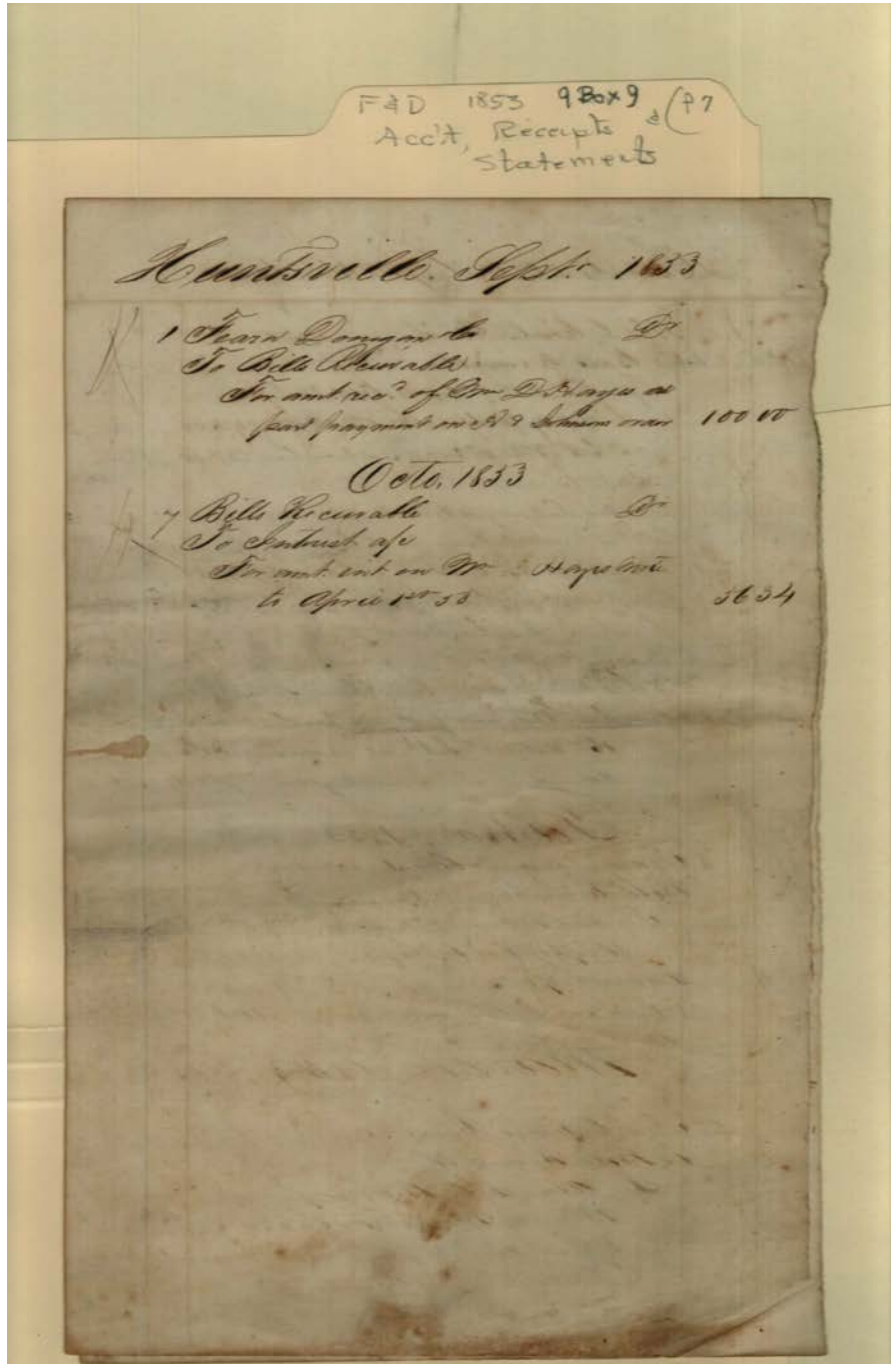 F & D 1853 9 Box 9 (P 7
Acc't, Receipts &
Statements
Huntsville. Septr. 1853
1 Fearn Donegan & Co Dr
To Bills Receivable
For amt recd. of Wm D Hayes as
part payment on Johnsons order 100 00
Octo. 1853
7 Bills Receivable Dr
To Interest a/c
For amt. int on Wm Hayes Note
to April 1st 53 36 34